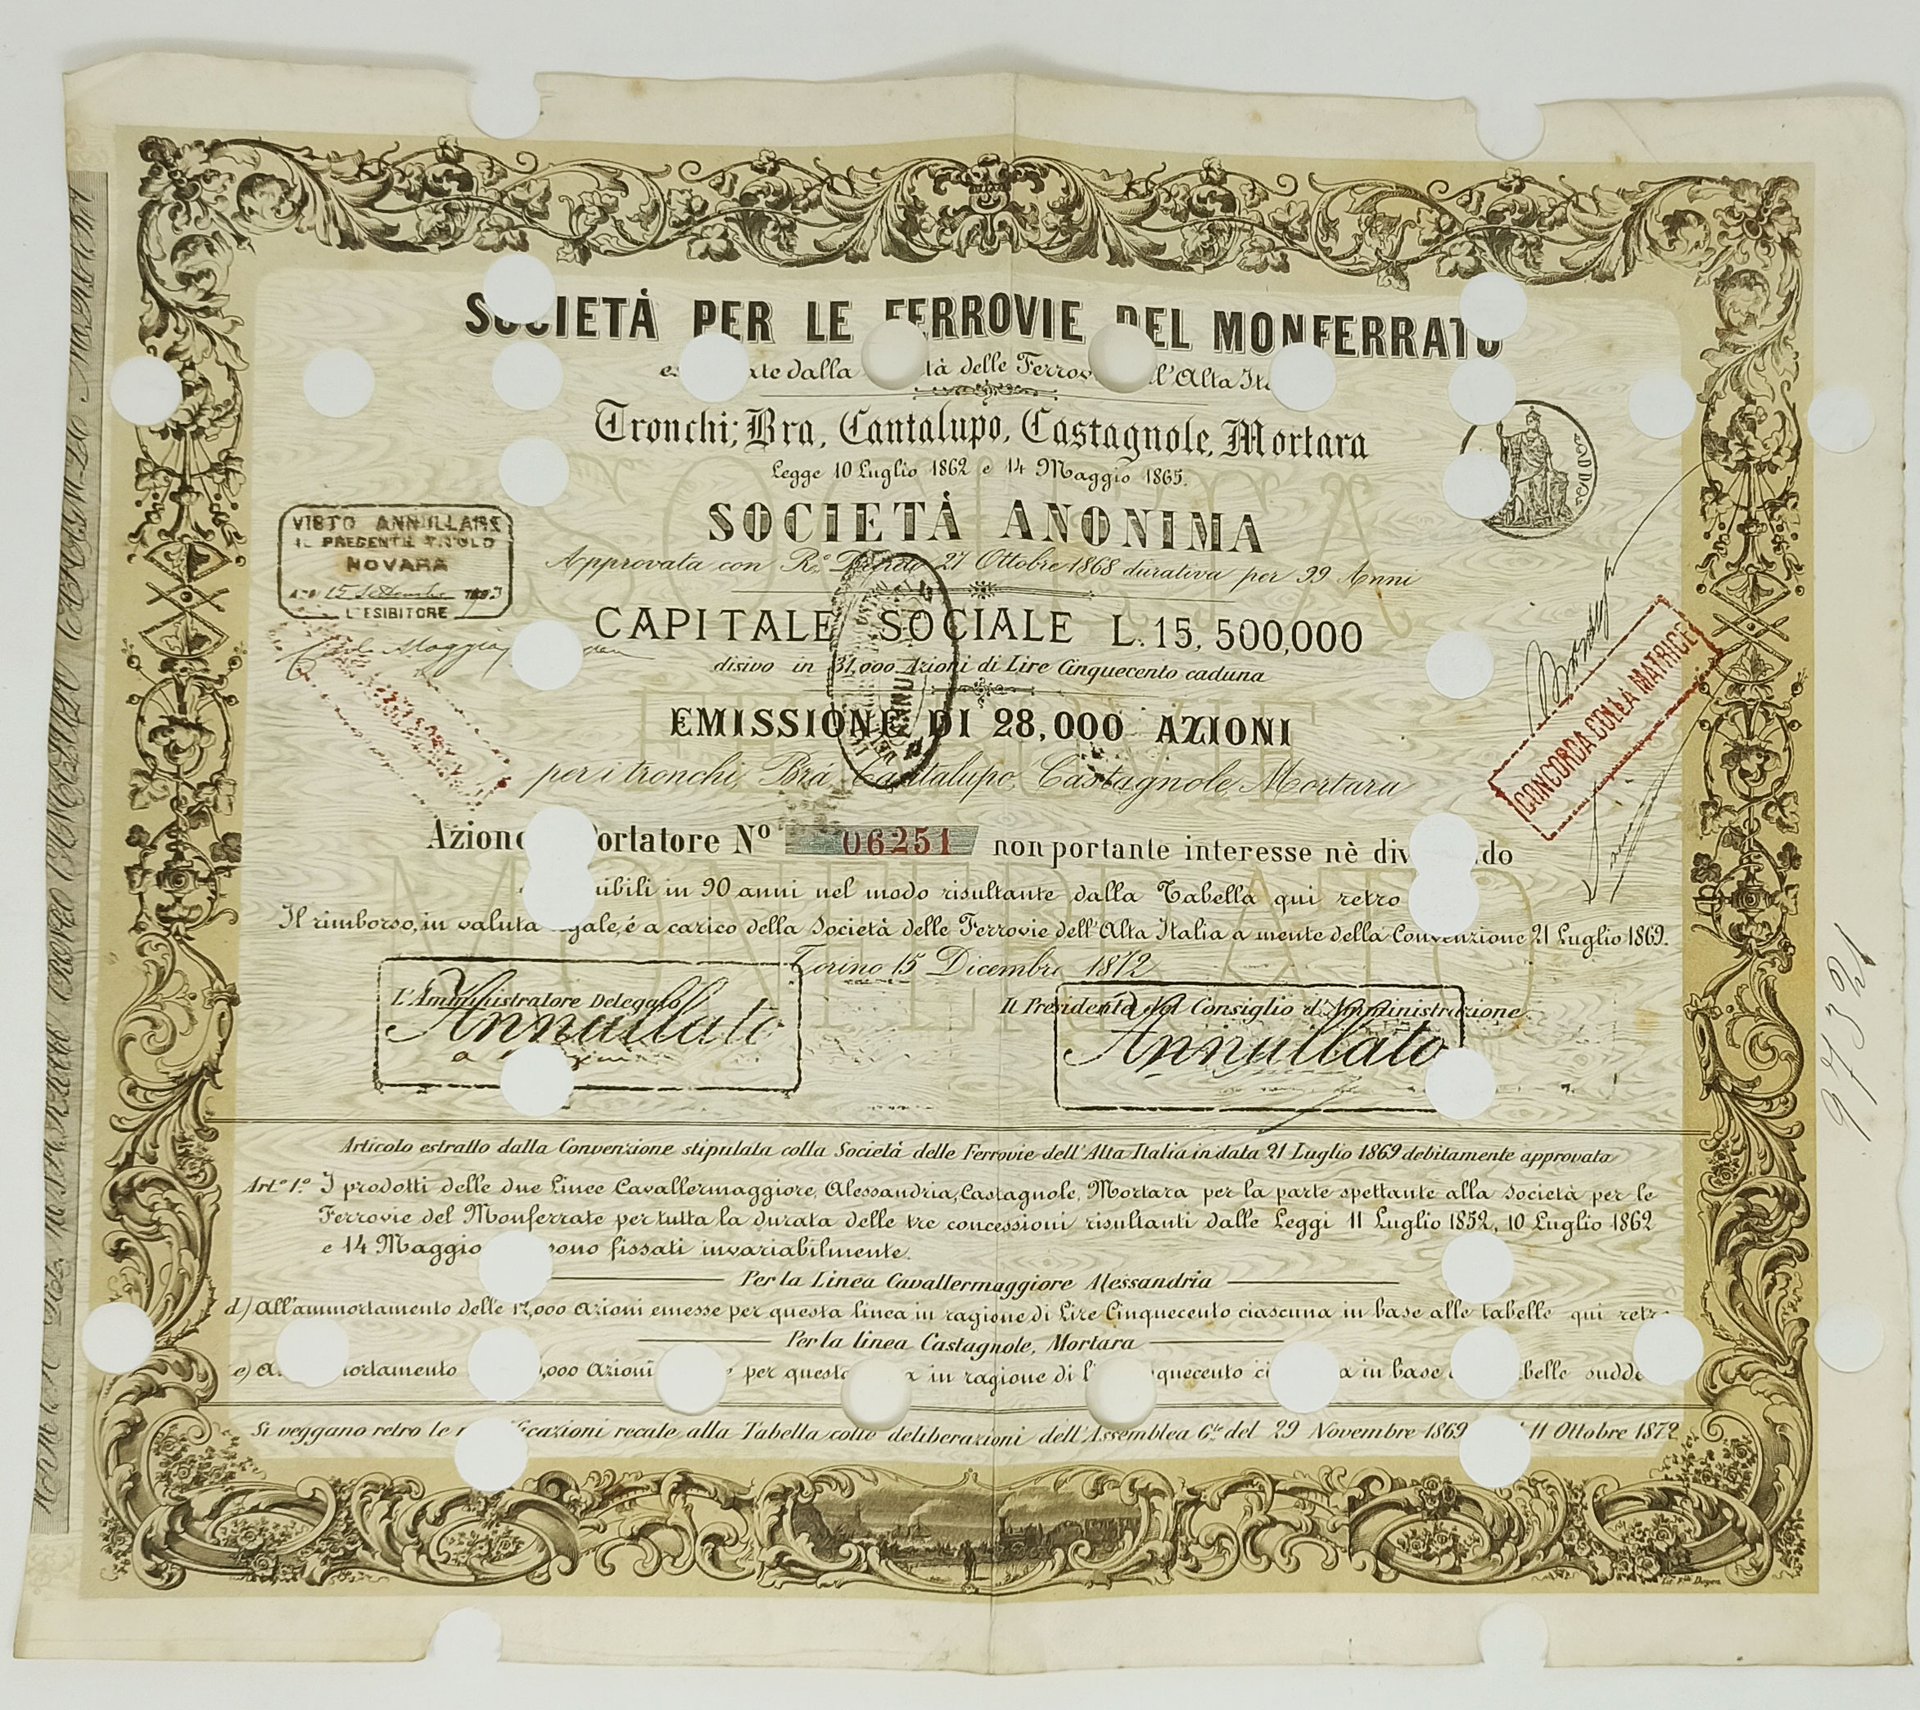 SOCIETÀ PER LE FERROVIE DEL MONFERRATO
dalla delle l'Alta
Tronchi; Bra, Cantalupo, Castagnole, Mortara
Legge 10 Luglio 1862 e 14 Maggio 1865.
SOCIETÀ ANONIMA
Approvata con R.º 27 Ottobre 1868 durativa per 99 Anni
CAPITALE SOCIALE L. 15,500,000
disivo in 31,000 Azioni di Lire Cinquecento caduna
EMISSIONE DI 28,000 AZIONI
per i tronchi, Brá, Cantalupo, Castagnole, Mortara
Nº 06251 non portante interesse nè
in 90 anni nel modo risultante dalla Tabella qui retro
Il rimborso, in valuta è a carico della Società delle Ferrovie dell'Alta Italia a mente della Convenzione 21 Luglio 1869.
Torino 15 Dicembre 1872
L'Amministratore Delegato
Il Presidente del Consiglio d'Amministrazione
Annullato
Annullato
VISTO ANNULLARE
IL PRESENTE TITOLO
NOVARA
15 Settembre
L'ESIBITORE
CONCORDA COLLA MATRICE
97321
Articolo estratto dalla Convenzione stipulata colla Società delle Ferrovie dell'Alta Italia in data 21 Luglio 1869 debitamente approvata
Art.º 1.º I prodotti delle due Linee Cavallermaggiore, Alessandria, Castagnole, Mortara per la parte spettante alla Società per le
Ferrovie del Monferrate per tutta la durata delle tre concessioni risultanti dalle Leggi 11 Luglio 1852, 10 Luglio 1862
e 14 Maggio sono fissati invariabilmente.
Per la Linea Cavallermaggiore Alessandria
d) All'ammortamento delle 17,000 Azioni emesse per questa linea in ragione di Lire Cinquecento ciascuna in base alle tabelle qui retro
Per la linea Castagnole, Mortara
e) Azioni per in ragione di in base
Si veggano retro le recate alla Tabella colle deliberazioni dell'Assemblea G.le del 29 Novembre 1869 11 Ottobre 1872
SOCIETÀ
FERROVIE
MONFERRATO